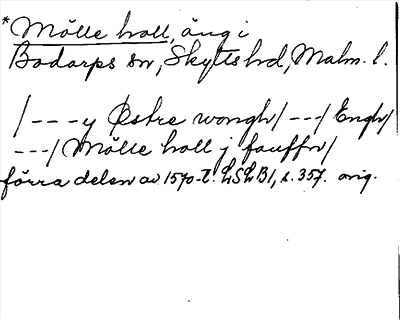 *Mölle hall, äng i
Bodarps sn, Skytts hd, Malm. l.
/---y Østre wongh/---/Engh/
---/Mölle holl j fauffn/
förra delen av 1570-t. LSLB1, s. 357. orig.